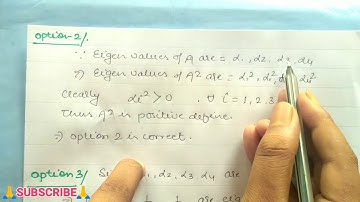 option 2/.
∵ Eigen values of A are = α1, α2, α3, α4
⇒ Eigen values of A² are = α1², α2², α4²
Clearly αi² > 0 , ∀ i = 1, 2, 3
Thus A² is positive define.
⇒ option 2 is correct.
option 3/ α1, α2, α3 α4 are
🙏SUBSCRIBE🙏